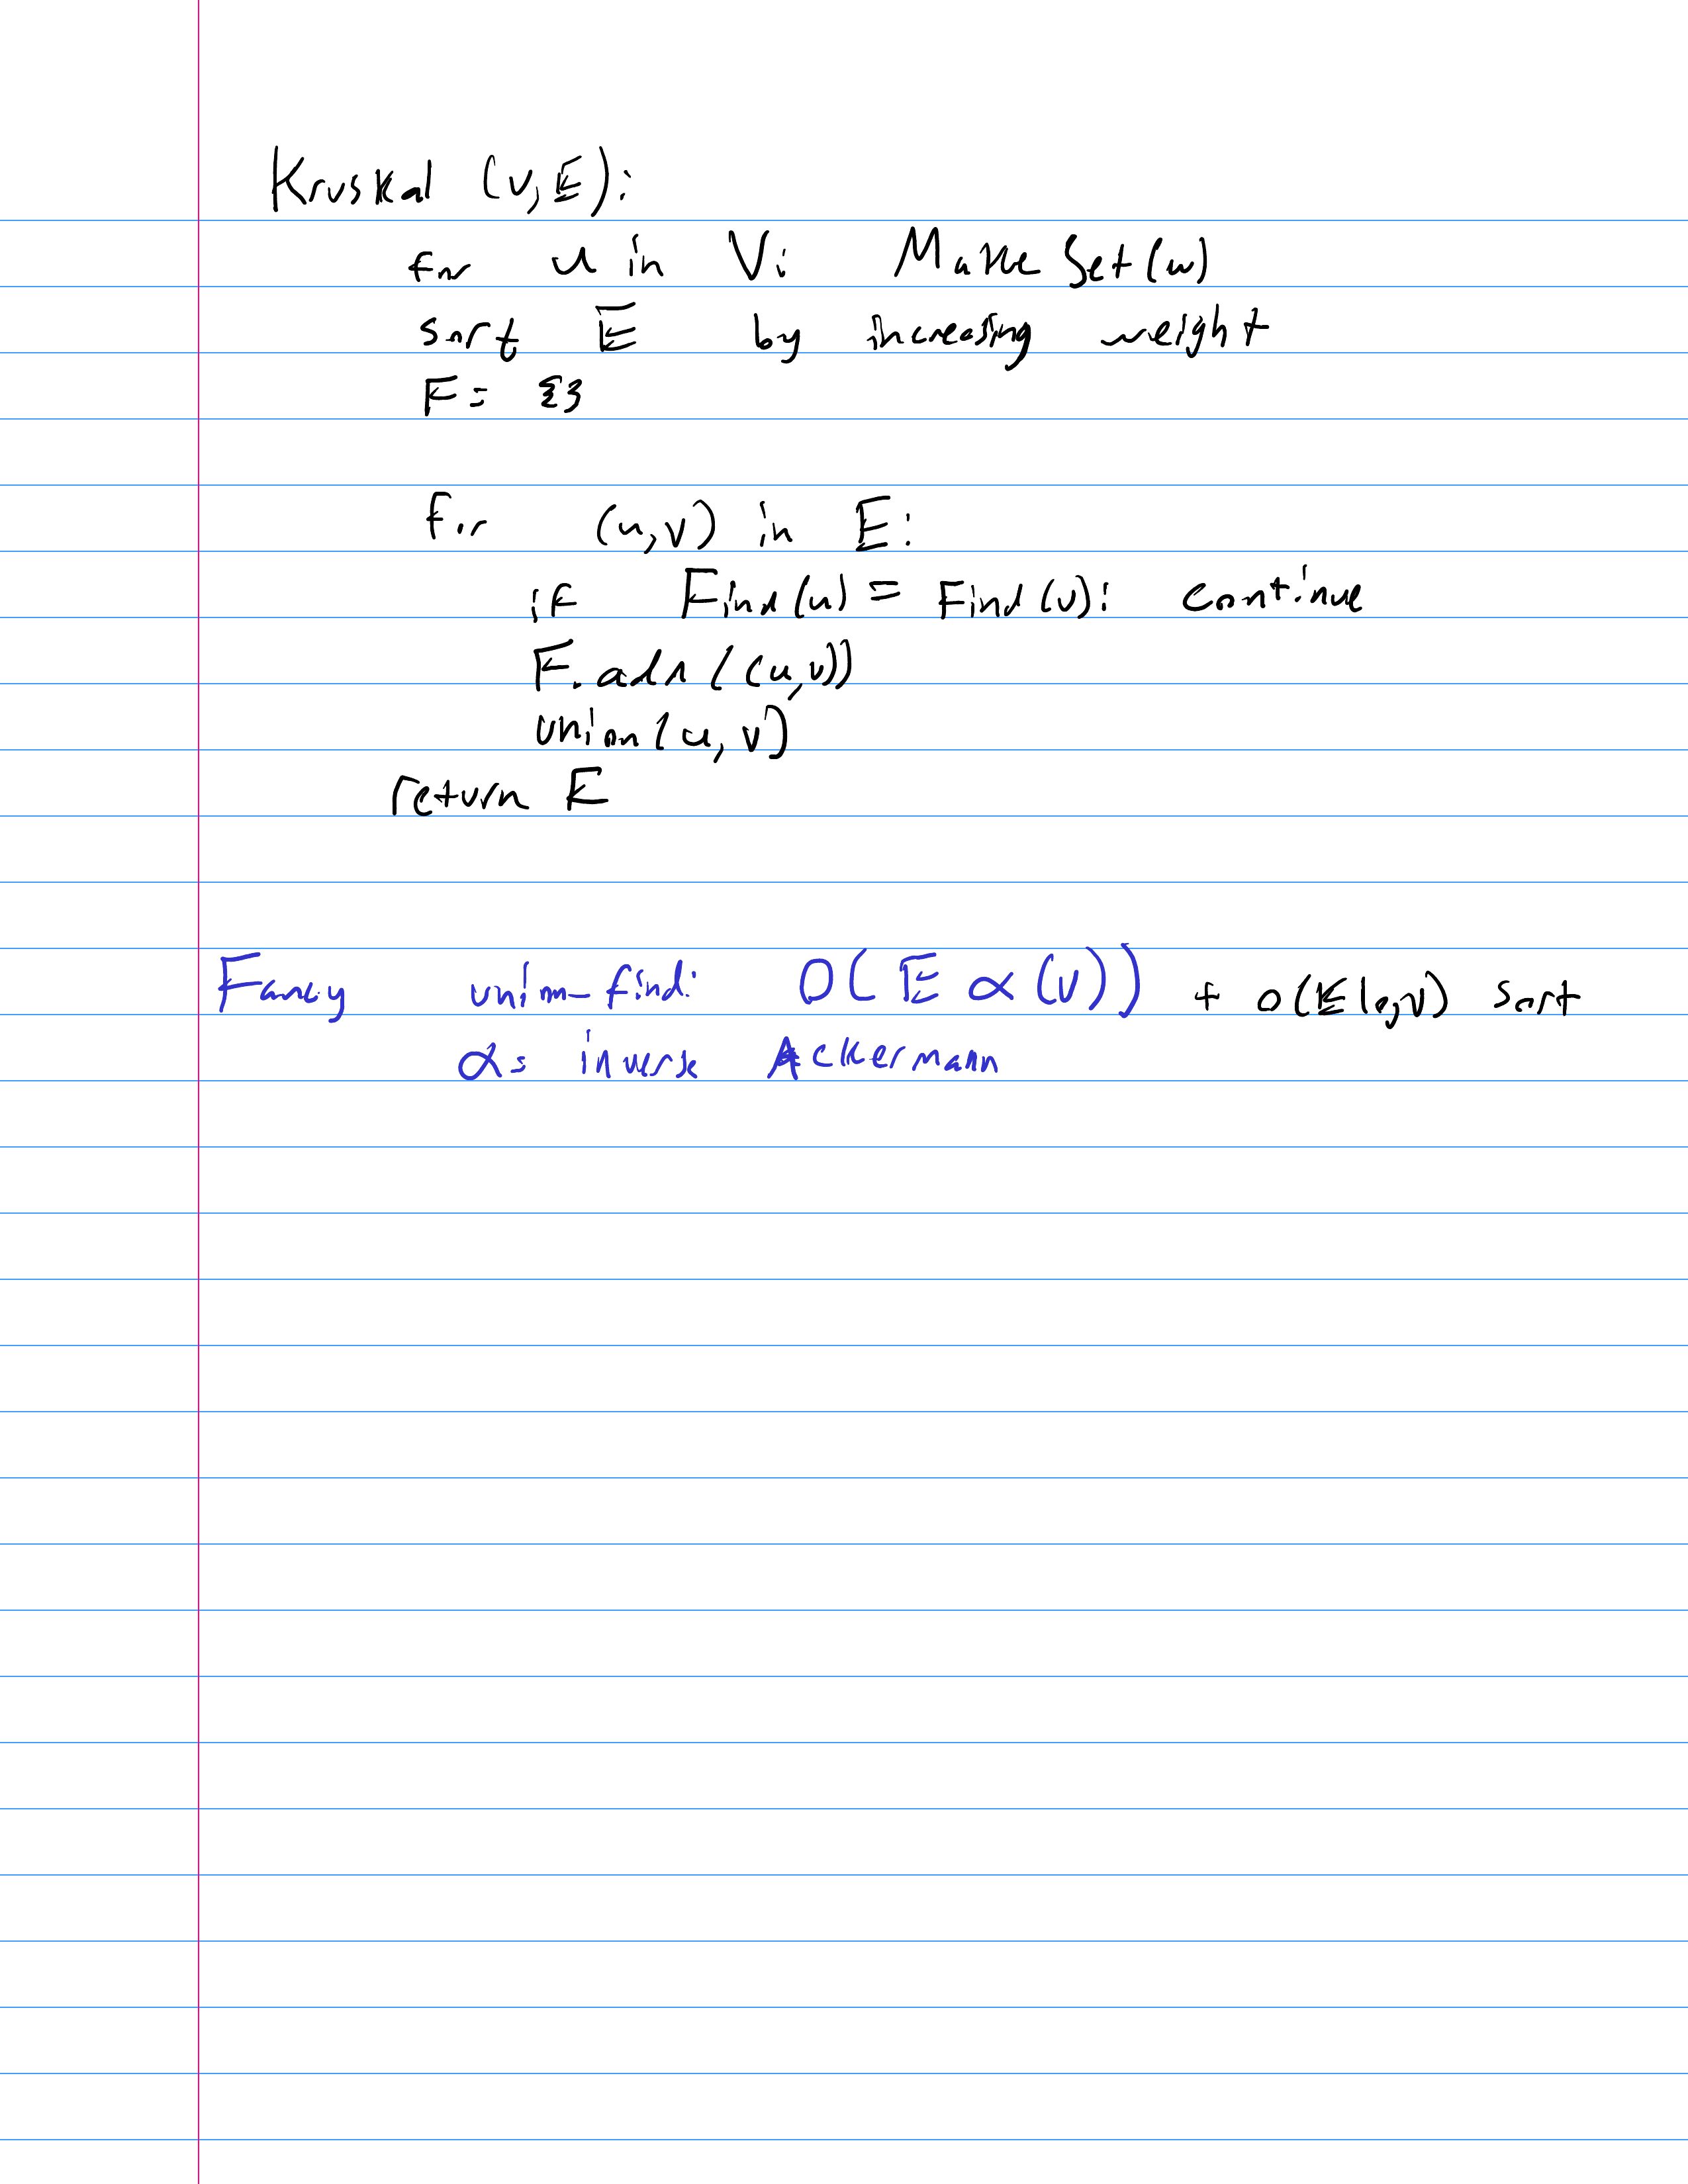 Kruskal (V,E):
for u in V: MakeSet(u)
sort E by increasing weight
F = {}
for (u,v) in E:
if Find(u) = Find(v): continue
F.add((u,v))
union(u,v)
return F
Fancy union-find: O(E α(V)) + O(E log V) sort
α = inverse Ackermann